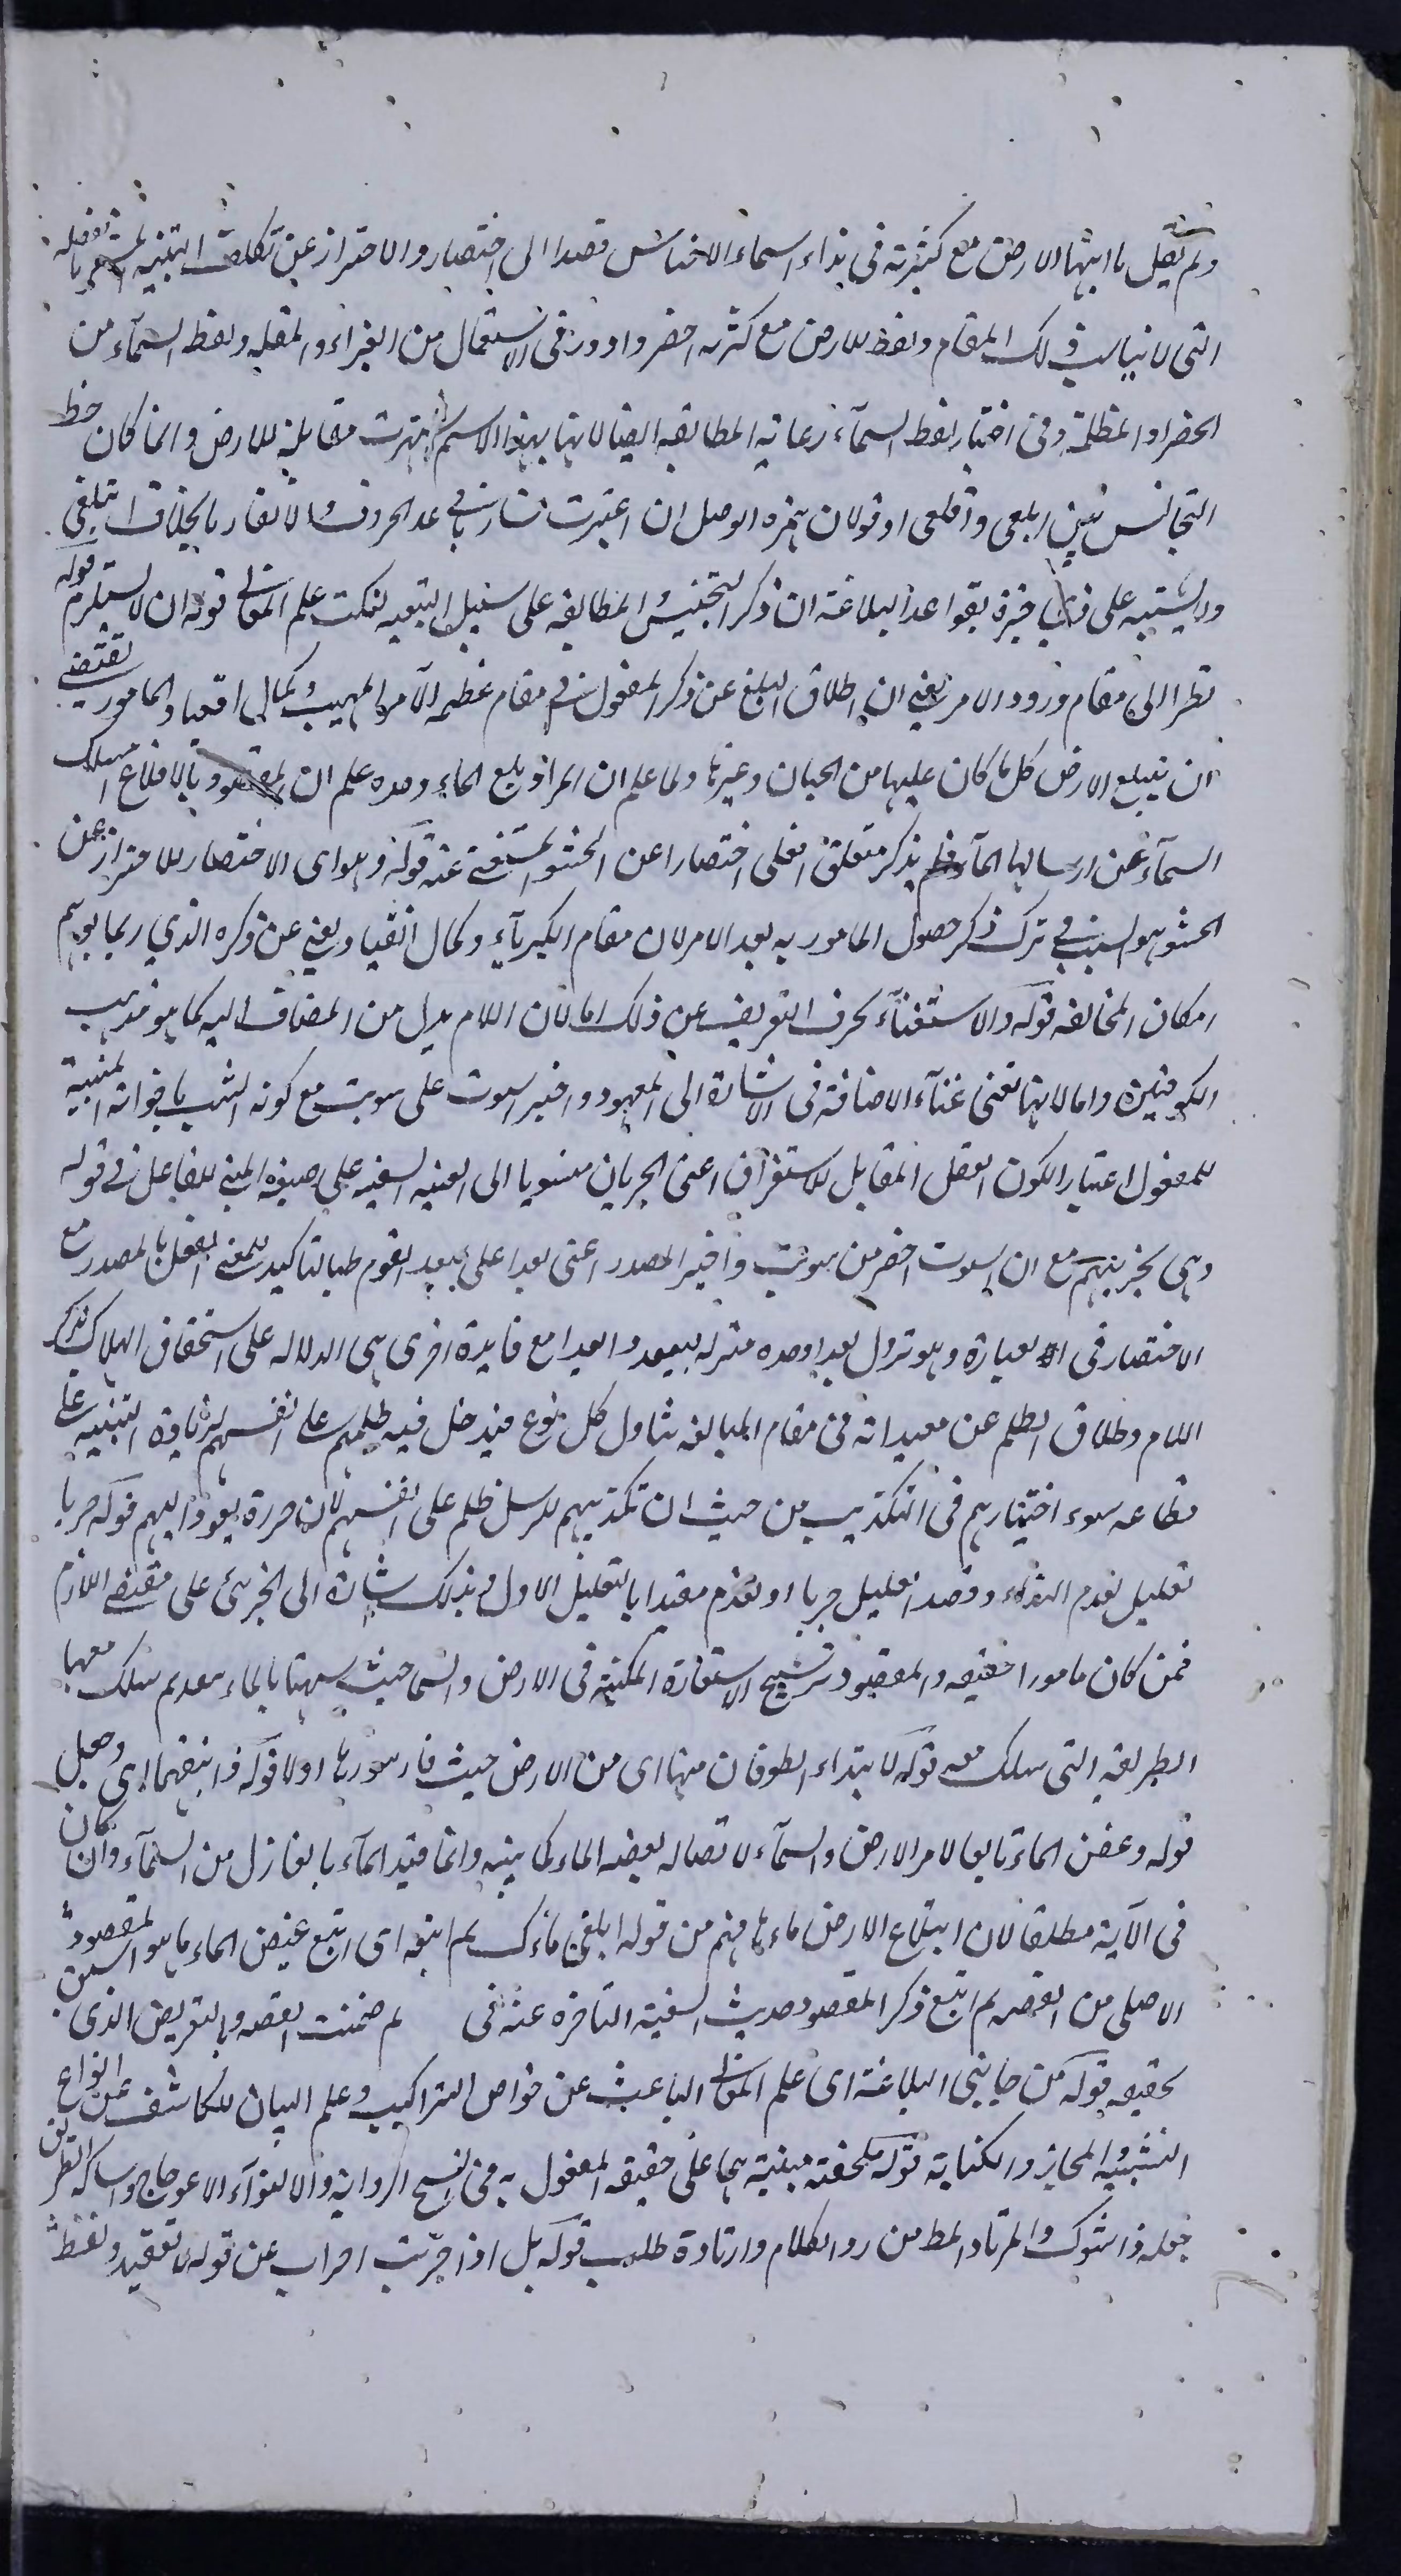 ولم يقل يا ايتها الارض مع كثرته فى نداء اسماء الاجناس قصدا الى الاختصار والاحتراز عن تكلف التنبيه المشعر بالغفلة
التى لا يناسب ذلك المقام ولفظ للارض مع كثرته اخضر وادور فى الاستعمال من الغبراء والمقلة ولفظ السمآء من
الخضراء والمظلة وفى اختيار لفظ السمآء رعاية المطابقة ايضا لانها بهذا الاسم اشتهرت مقابلة للارض وانما كان حظ
التجانس بين ابلعى واقلعى اوفر لان همزة الوصل ان اعتبرت تشاركا فى عدد الحروف والا تقاربا بخلاف ابتلعى
ولا يشتبه على من له خبرة بقواعد البلاغة ان ذكر التجنيس والمطابقة على سبيل التبعية لنكت علم المعانى قوله ان لا يستلزم قوله
نظرا الى مقام ورود الامر يعنى ان اطلاق البلع عن ذكر المفعول فى مقام عظمة الآمر المهيب وكمال انقياد المامور يقتضى
ان يبتلع الارض كل ما كان عليها من الجبال وغيرها ولما علم ان المراد بلع الماء وحده علم ان المقصود بالاقلاع امساك
السمآء عن ارسالها المآء فلم يذكر متعلق اقلعى اختصارا عن الحشو المستغنى عنه قوله وهو اى الاختصار للاحتراز عن
الحشو هو السبب فى ترك ذكر حصول المامور به بعد الامر لان مقام الكبريآء وكمال انقياد يغنى عن ذكره الذي ربما يوهم
امكان المخالفه قوله والاستغنآء بحرف التعريف عن ذلك اما لان اللام بدل من المضاف اليه كما هو مذهب
الكوفيين واما لانها تغنى غنآء الاضافة فى الاشارة الى المعهود واختير استوت على سويت مع كونه انسب باخواته المبنية
للمفعول اعتبارا لكون الفعل المقابل للاستقرار اعنى الجريان منسوبا الى السفينه على صيغة المبنى للفاعل فى قوله
وهى تجرى بهم مع ان استوت اخصر من سويت واختير المصدر اعنى بعدا على ليبعد القوم طلبا لتاكيد معنى الفعل بالمصدر مع
الاختصار فى العبارة وهو نزول بعدا وحده منزلة ليبعدوا بعدا مع فايدة اخرى هى الدلاله على استحقاق الهلاك بذكر
اللام واطلاق الظلم عن مقيداته فى مقام المبالغه تناول كل نوع فيدخل فيه ظلمهم على انفسهم لزيادة التنبيه على
فظاعة سوء اختيارهم فى التكذيب من حيث ان تكذيبهم للرسل ظلم على انفسهم لان ضرره يعود اليهم قوله جريا
تعليل لقدم النداء وقصد تعليل جريا او لقدم مقيدا بالتعليل الاول وبذلك اشارة الى الجرى على مقتضى اللازم
فمن كان مامورا حقيقه والمقصود ترشيح الاستعارة المكنية فى الارض والسما حيث شبهتا بالماء بعد ثم سلك معها
الطريقه التى سلك معه قوله لابتداء الطوفان منها اى من الارض حيث فار تنورها اولا قوله ثم اتبعهما اى وجعل
قوله وغيض الماء تابعا لامر الارض والسمآء لاتصاله بقصة الماء كما بينه وانما قيد المآء بالنازل من السمآء وان كان
فى الآية مطلقا لان ابتلاع الارض ماءها فهم من قوله ابلعى ماءك ثم اتبعه اى اتبع غيض الماء ما هو المقصود
الاصلى من القصه ثم اتبع ذكر المقصود حديث السفينة المتاخرة عنه فى ثم ختمت القصه وبالتعريض الذى
تحقيقه قوله من جانبى البلاغة اى علم المعانى الباحث عن خواص التراكيب وعلم البيان الكاشف عن انواع
التشبيه والمجاز والكناية قوله ملخصة مبينة هما على حقيقه المفعول به فى نسخ الرواية والالتوآء الاعوجاج واشاكه الطريق
جعله ذا شوك والمرتاد المط من رود الكلام وارتاده طلبه قوله بل اذا جربت اضراب عن قوله لا تعقيد ولفظ